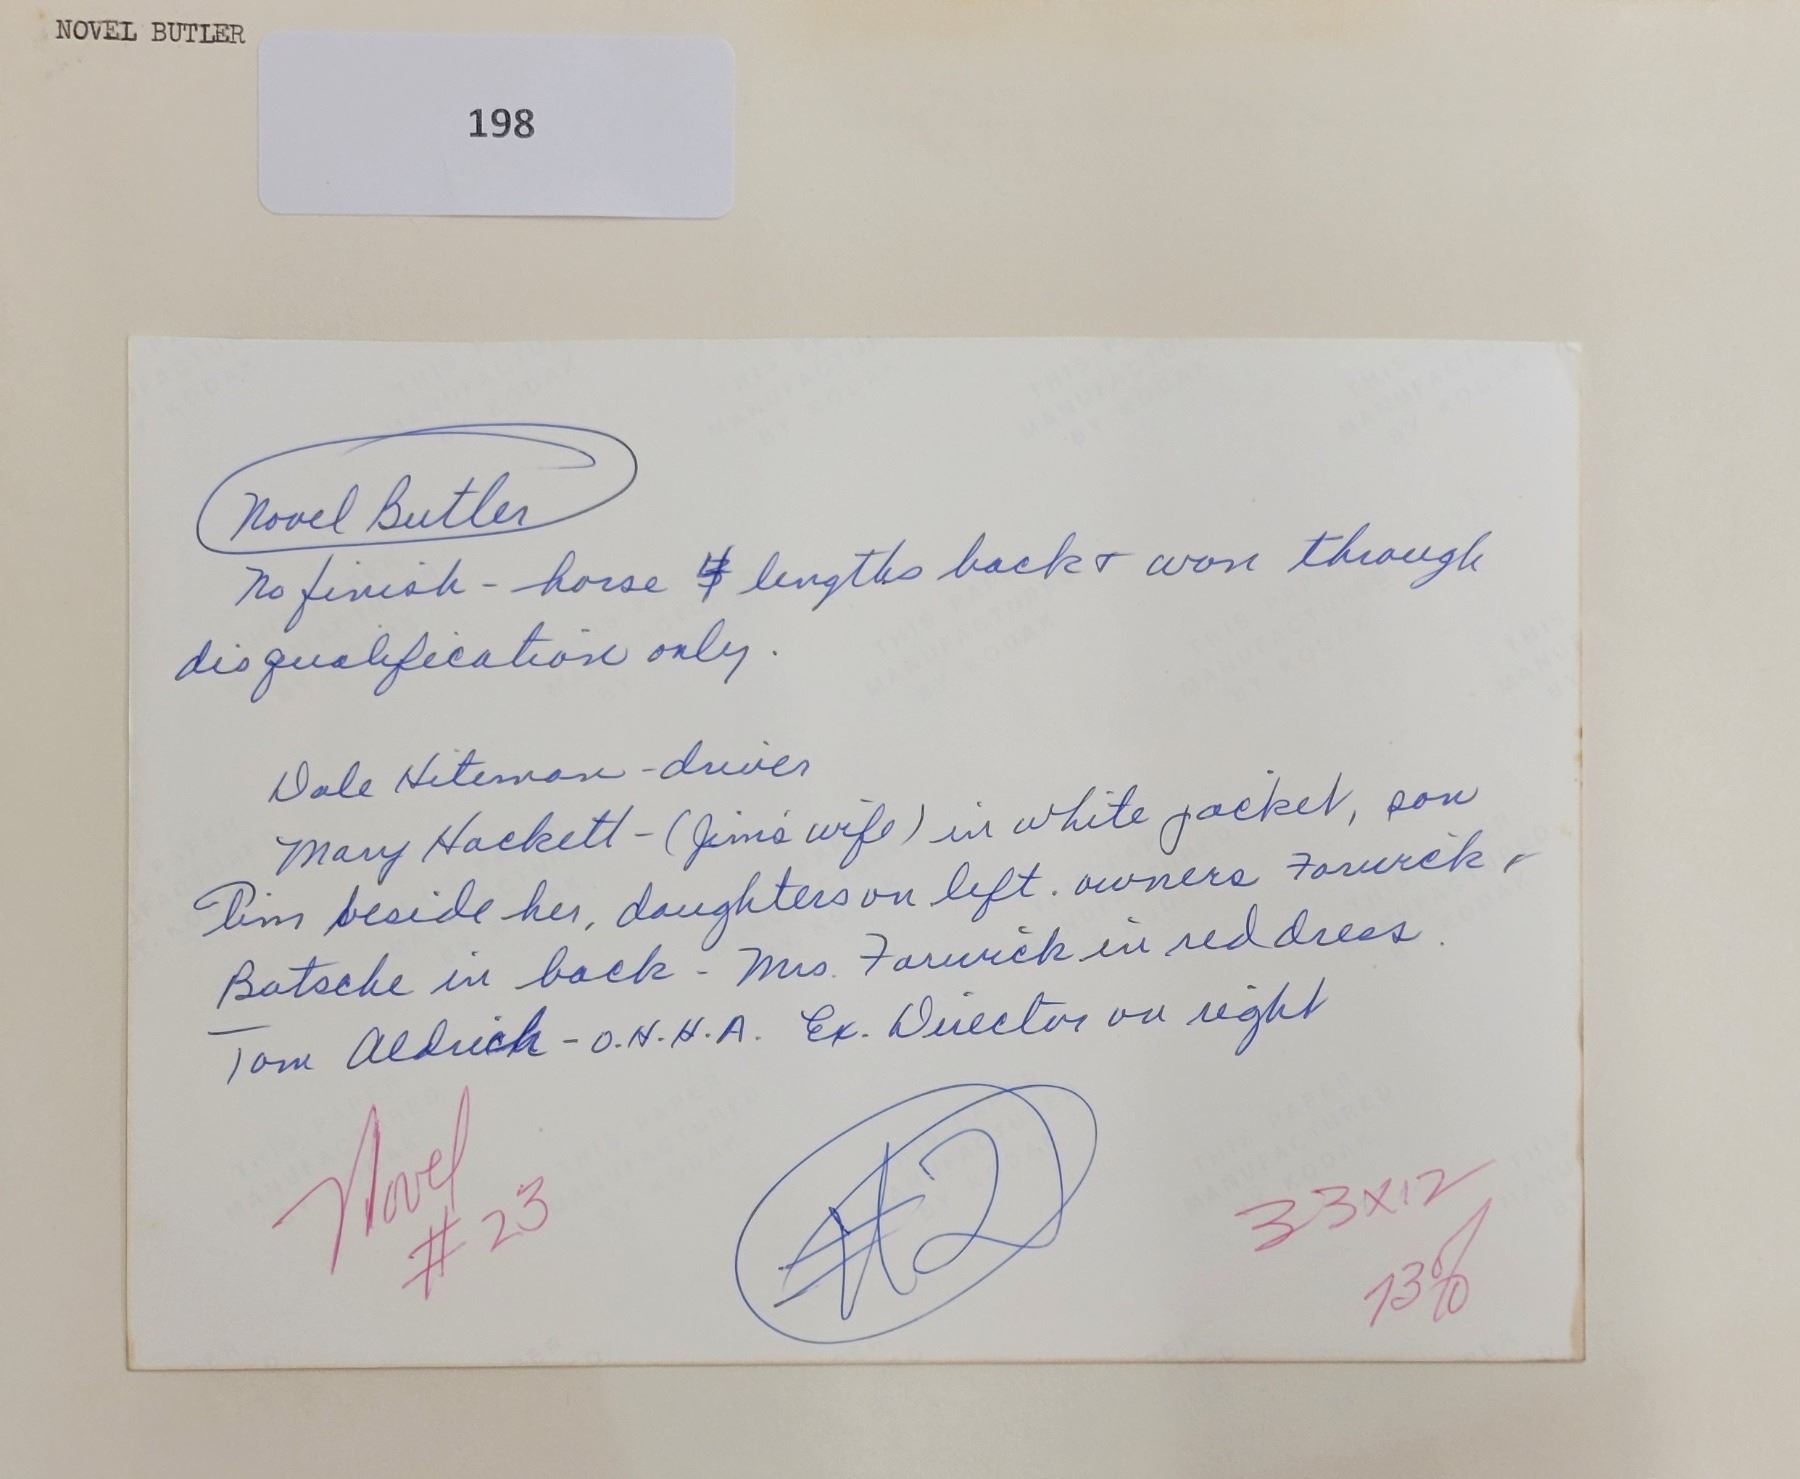 NOVEL BUTLER
198
Novel Butler
No finish - horse 4 lengths back & won through
disqualification only.
Dale Hiteman - driver
Mary Hackett - (Jim's wife) in white jacket, son
Tim beside her, daughters on left. owners Farwick &
Batsche in back - Mrs. Farwick in red dress.
Tom Aldrich - O.H.H.A. Ex. Director on right
Novel
# 23
#2
33x12
73%
THIS PAPER
MANUFACTURED
BY KODAK